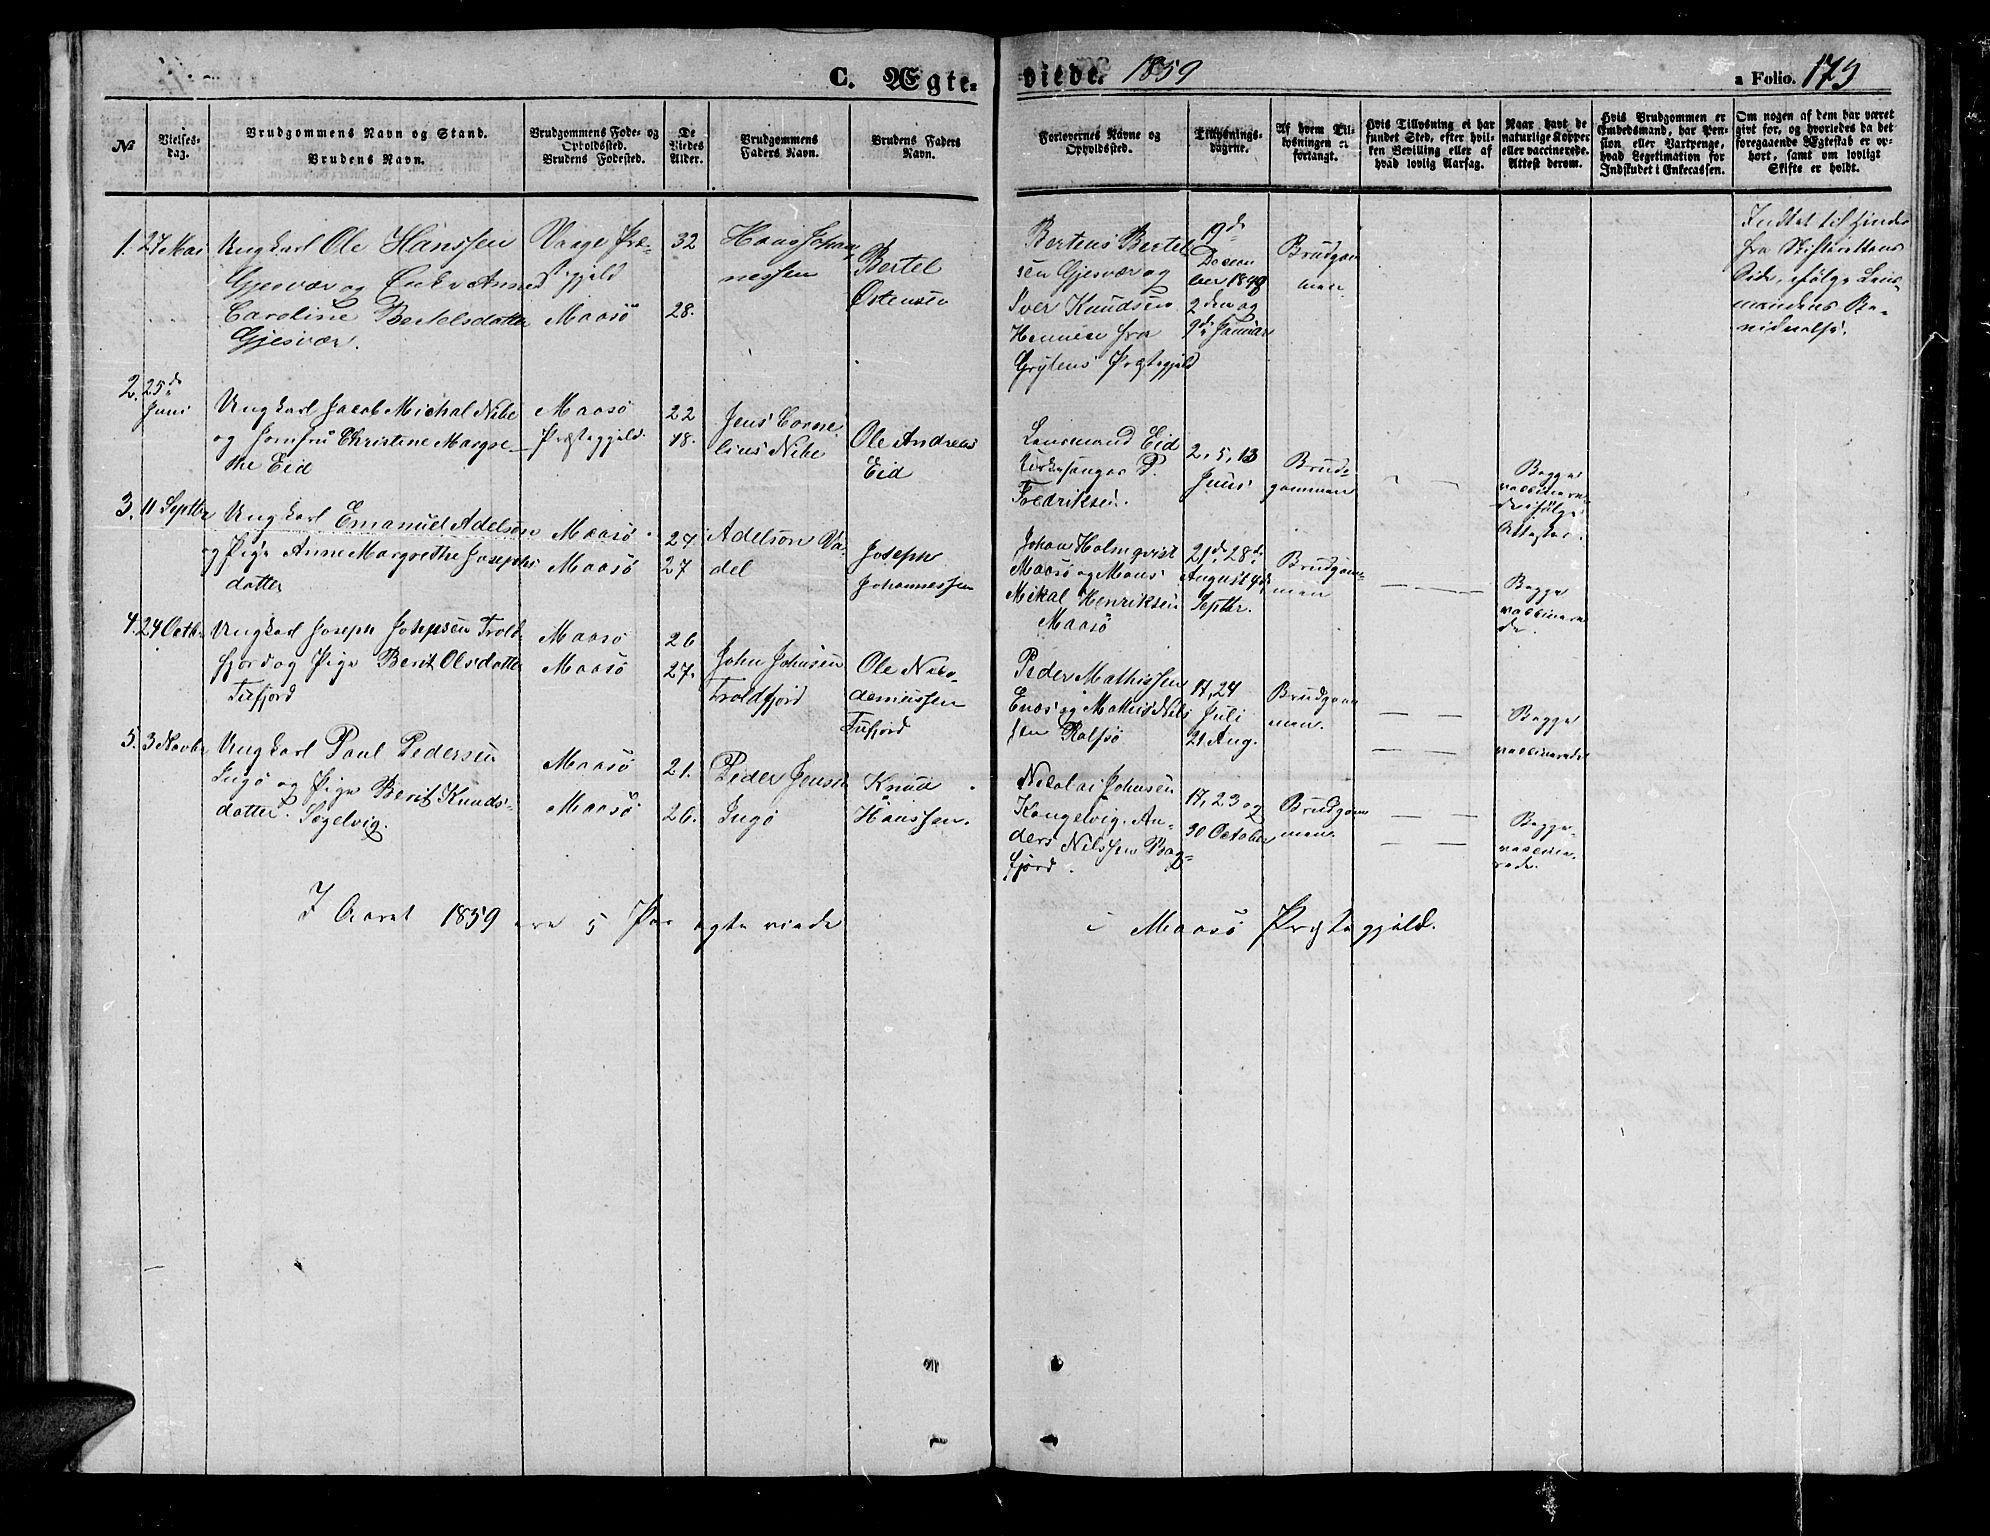 C. Ægte-
viede. 1859
a Folio. 173
No
Vielses-
dag.
Brudgommens Navn og Stand.
Brudens Navn.
Brudgommens Føde- og
Opholdssted.
Brudens Fødested.
De
Viedes
Alder.
Brudgommens
Faders Navn.
Brudens Faders
Navn.
Forlovernes Navne og
Opholdssted.
Tillysnings-
dagene.
Af hvem Til-
lysningen er
forlangt.
Hvis Tillysning ei har
fundet Sted, efter hvil-
ken Bevilling eller af
hvad lovlig Aarsag.
Naar havt de
naturlige Kopper
eller vaccinerede.
Attest derom.
Hvis Brudgommen er
Embedsmand, har Pen-
sion eller Vartpenge,
hvad Legitimation for
Indskudet i Enkecassen.
Om nogen af dem har været
gift før, og hvorledes da det
foregaaende Ægteskab er op-
hørt, samt om lovligt
Skifte er holdt.
1. 27 Mai
Ungkarl Ole Hanssen
Gjesvær og Enke Anne
Caroline Bertelsdatter
Gjesvær.
Vaage Præ-
stgjeld
Maasö
32
28.
Hans Johan-
nessen
Bertel
Östensen
Bertens Bertel-
sen Gjesvær og
Iver Knudsen
fra
Grytens Præstegjeld
19de
Decem
ber
2den og
9de Januar
Brudgom
men
Intet til hinder
fra Skifterettens
Side, ifölge Lens-
mandens Be-
2. 25de
Juni
Ungkarl Jacob Michal Nibe
og Jomfru Christine Margre-
the Eid
Maasö
Præstegjeld.
22
18.
Jens Corne
lius Nibe
Ole Andreas
Eid
Lensmand Eid
Kirkesanger P.
Fredriksen.
2, 5, 13
Juni
Brud-
gommen
Begge
vaccinere-
de ifölge
Attester.
3. 11 Septbr
Ungkarl Emanuel Adelson
og Pige Anne Margrethe Josephs
datter
Maasö
Maasö
24
27
Adelson Va-
del
Joseph
Johannessen
Johan Holmqvist
Maasö og Mons
Mikal Henriksen
Maasö
21de, 28de
August 4de
Septbr.
Brudgom-
men
Begge
vaccinere
de.
4. 24 Octb.
Ungkarl Joseph Johnsen Trold-
fjord og Pige Berit Olsdatter
Tufjord
Maasö
Maasö
26
27.
John Johnsen
Troldfjord
Ole Nico-
demussen
Tufjord
Peder Mathissen
og Mathis Nils
sen Rolfsö
17, 24
Juli
21 Aug.
Brudgom
men.
Begge
vaccinerede
5. 3 Novbr
Ungkarl Paul Pedersen
Ingö og Pige Berit Knuds-
datter. Segelvig.
Maasö
Maasö
21.
26.
Peder Jensen
Ingö
Knud
Hanssen.
Nicolai Johnsen
Kongelvig. An-
ders Nilssen Bag-
fjord.
17, 23 og
30 October
Brudgom
men.
Begge
vaccine-
rede.
I Aaret 1859 ere 5 Par ægte viede
i Maasö Præstegjeld.